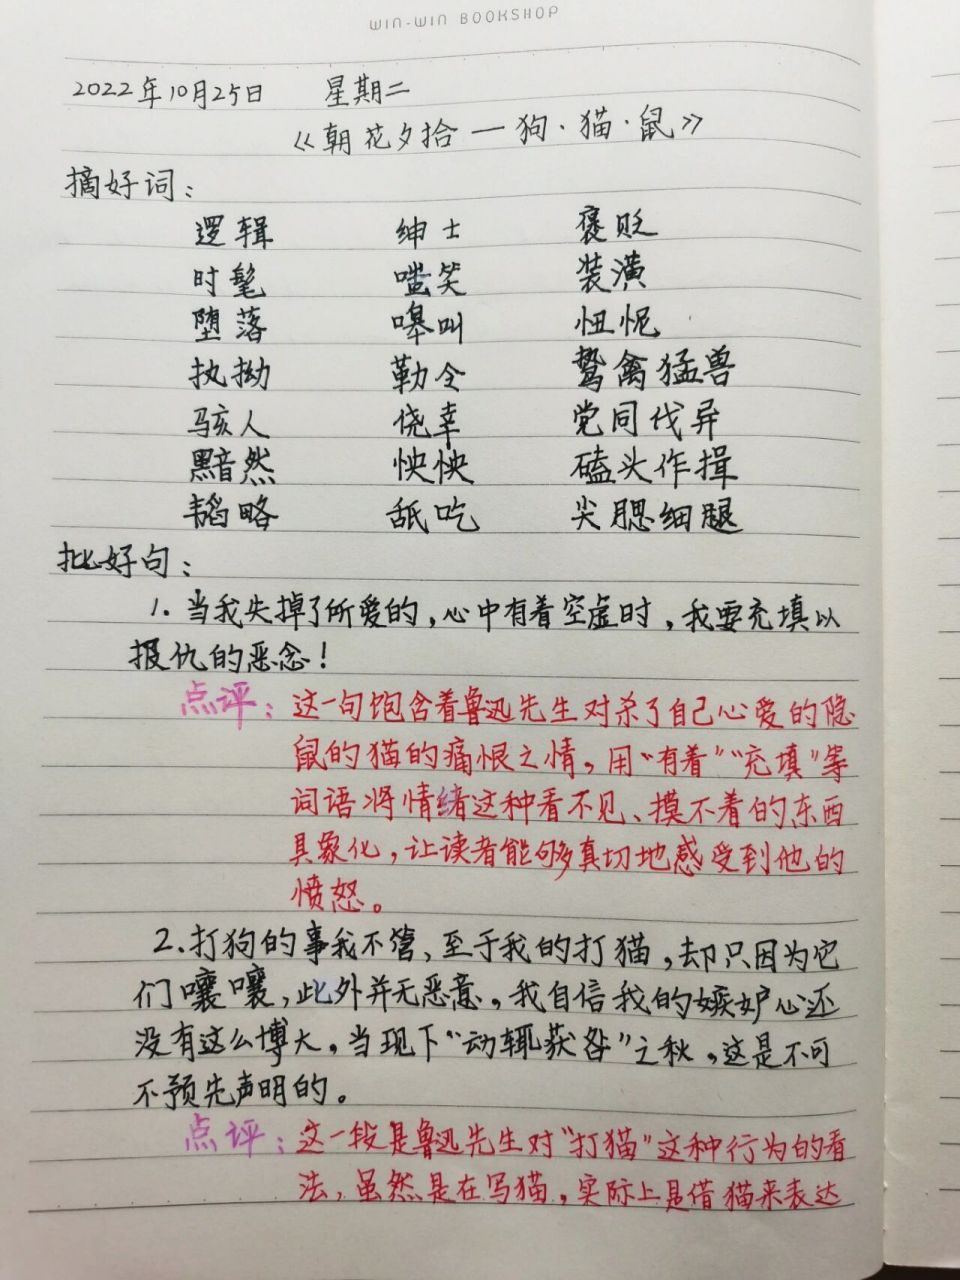 WIN-WIN BOOKSHOP
2022年10月25日 星期二
《朝花夕拾一狗·猫·鼠》
摘好词：
逻辑 绅士 褒贬
时髦 嗤笑 装潢
堕落 嗥叫 忸怩
执拗 勒令 鸷禽猛兽
骇人 侥幸 党同伐异
黯然 怏怏 磕头作揖
韬略 舐吃 尖腮细腿
批好句：
1. 当我失掉了所爱的，心中有着空虚时，我要充填以
报仇的恶念！
点评：这一句饱含着鲁迅先生对杀了自己心爱的隐
鼠的猫的痛恨之情，用“有着”“充填”等
词语将情绪这种看不见、摸不着的东西
具象化，让读者能够真切地感受到他的
愤怒。
2.打狗的事我不管，至于我的打猫，却只因为它
们嚷嚷，此外并无恶意，我自信我的嫉妒心还
没有这么博大，当现下“动辄获咎”之秋，这是不可
不预先声明的。
点评：这一段是鲁迅先生对“打猫”这种行为的看
法，虽然是在写猫，实际上是借猫来表达